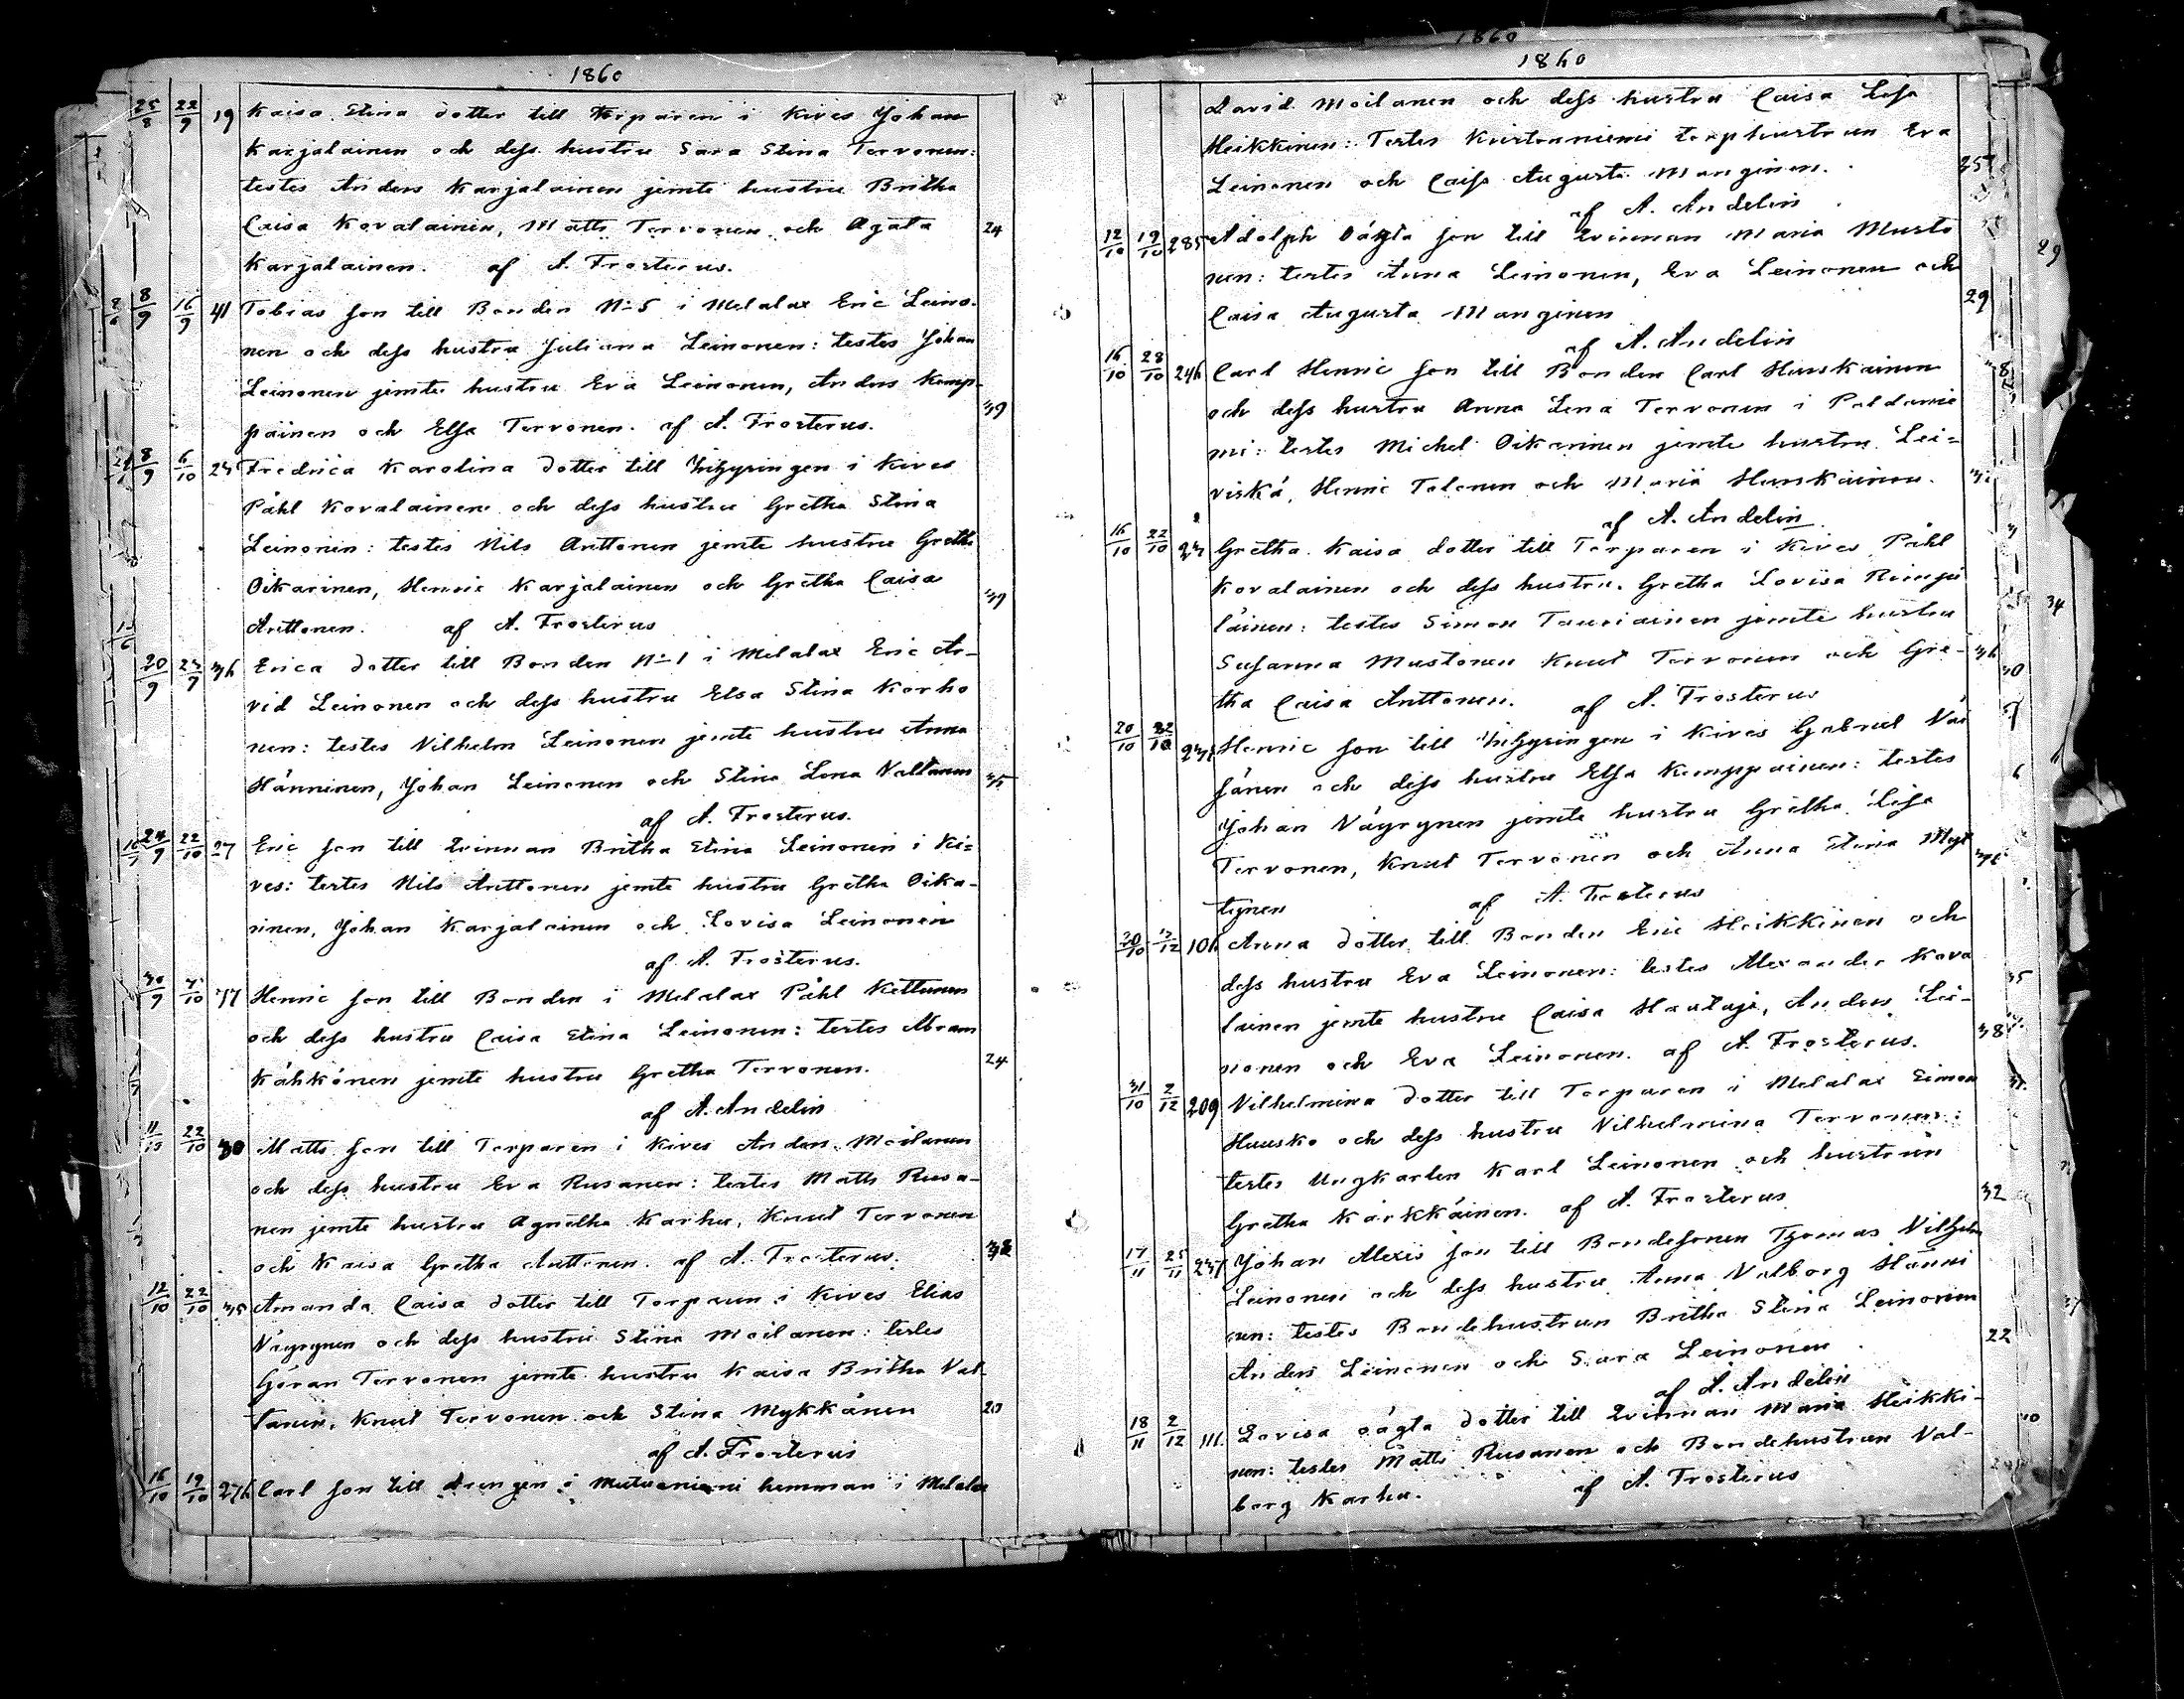 1860
25/8 22/9 19 Kaisa Stina dotter till Torparen i Kives Johan
Karjalainen och dess hustru Sara Stina Tervonen:
testes Anders Karjalainen jemte hustru Britha
Caisa Kovalainen, Matts Tervonen och Agata 24
Karjalainen. af A. Frosterus.
8/9 16/9 41 Tobias son till Bonden N:o 5 i Melalax Eric Leino-
nen och dess hustru Juliana Leinonen: testes Johan
Leinonen jemte hustru Eva Leinonen, Anders Kemp- 39
painen och Elsa Tervonen. af A. Frosterus.
8/9 6/10 23 Fredrica Karolina dotter till Inhysingen i Kives
Påhl Kovalainen och dess hustru Gretha Stina
Leinonen: testes Nils Anttonen jemte hustru Gretha
Oikarinen, Henric Karjalainen och Gretha Caisa 39
Anttonen. af A. Frosterus
20/9 23/9 36 Erica dotter till Bonden N:o 1 i Melalax Eric Ar-
vid Leinonen och dess hustru Elsa Stina Korho
nen: testes Vilhelm Leinonen jemte hustru Anna
Hänninen, Johan Leinonen och Stina Lena Valtanen 35
af A. Frosterus.
24/9 22/10 27 Eric son till Qvinnan Britha Stina Leinonen i Ki=
ves: testes Nils Anttonen jemte hustru Gretha Oika-
rinen, Johan Karjalainen och Lovisa Leinonen
af A. Frosterus.
30/9 77 Henric son till Bonden i Melalax Påhl Kettunen
och dess hustru Caisa Stina Leinonen: testes Abram
Kähkönen jemte hustru Gretha Tervonen. 24
af A. Andelin
22/10 30 Matts son till Torparen i Kives Anders Moilanen
och dess hustru Eva Rusanen: testes Matts Rusa-
nen jemte hustru Agnetha Karhu, Knut Tervonen
och Kaisa Gretha Anttonen. af A. Frosterus. 38
12/10 22/10 35 Amanda Caisa dotter till Torparen i Kives Elias
Näyrynen och dess hustru Stina Moilanen: testes
Göran Tervonen jemte hustru Kaisa Britha Val-
tanen, Knut Tervonen och Stina Mykkänen
af A. Frosterus
16/10 19/10 276 Carl son till drengen i Mutuaniemi hemman i Melalax
1860
1860
David Moilanen och dess hustru Caisa Lisa
Heikkinen: Testes torphustrun Eva
Leinonen och Caisa Augusta Manginen.
af A. Andelin
12/10 19/10 285 Adolph oägta son till Qvinnan Maria Musto 29
nen: testes Anna Leinonen, Eva Leinonen och
Caisa Augusta Manginen 29
af A. Andelin
16/10 28/10 246 Carl Henric son till Bonden Carl Huuskainen
och dess hustru Anna Lena Tervonen i Paldanie
mi: testes Michel Oikarinen jemte hustru Lei=
viskä, Henric Tolonen och Maria Huuskainen.
af A. Andelin
16/10 22/10 23 Gretha Kaisa dotter till Torparen i Kives Påhl
Kovalainen och dess hustru Gretha Lovisa Rimpi
läinen: testes Simon Tauriainen jemte hustru 34
Susanna Mustonen Knut Tervonen och Gre- 36
tha Caisa Anttonen. af A. Frosterus
20/10 22/10 Henric son till Inhysingen i Kives Gabriel Väi
sänen och dess hustru Elsa Kemppainen: testes
Johan Näyrynen jemte hustru Gretha Lisa
Tervonen, Knut Tervonen och Anna Stina Myt
tynen af A. Frosterus
106 Anna dotter till Bonden Eric Heikkinen och
dess hustru Eva Leinonen: testes Alexander Kova
lainen jemte hustru Caisa Hautaje, Anders Lei- 38
nonen och Eva Leinonen. af A. Frosterus.
31/10 2/12 209 Vilhelmina dotter till Torparen i Melalax Simon
Huusko och dess hustru Vilhelmina Tervonen:
testes Ungkarlen Karl Leinonen och hustrun
Gretha Kärkkäinen. af A. Frosterus 32
17/11 25/11 237 Johan Alexis son till Bondesonen Thomas Vilhelm
Leinonen och dess hustru Anna Valborg Hänni
nen: testes Bondehustrun Britha Stina Leinonen
Anders Leinonen och Sara Leinonen 22
af A. Andelin
18/11 2/12 111. Lovisa oägta dotter till Qvinnan Maria Heikki-
nen: testes Matts Rusanen och Bondehustrun Val-
borg Karhu. af A. Frosterus